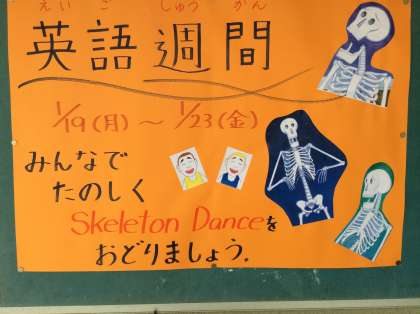 えいご しゅうかん
英語週間
1/19(月)～1/23(金)
みんなで
たのしく
Skeleton Danceを
おどりましょう.